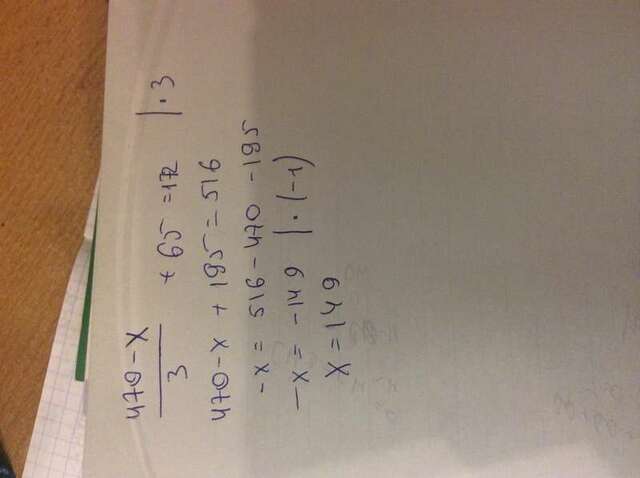 470-x / 3 + 65 = 172 | · 3
470-x + 195 = 516
-x = 516 - 470 - 195
-x = -149 | · (-1)
x = 149